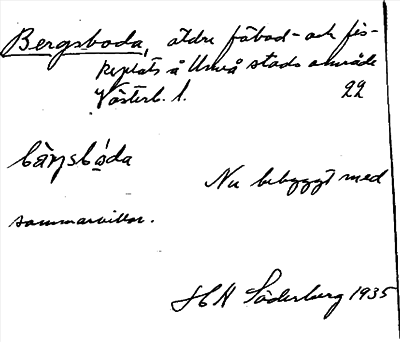 Bergsboda, äldre fäbod- och fis-
keplats å Umeå stads område
Västerb. l. 22
bàŋsbá̱da
Nu bebyggt med
sommarvillor.
H Söderberg 1935